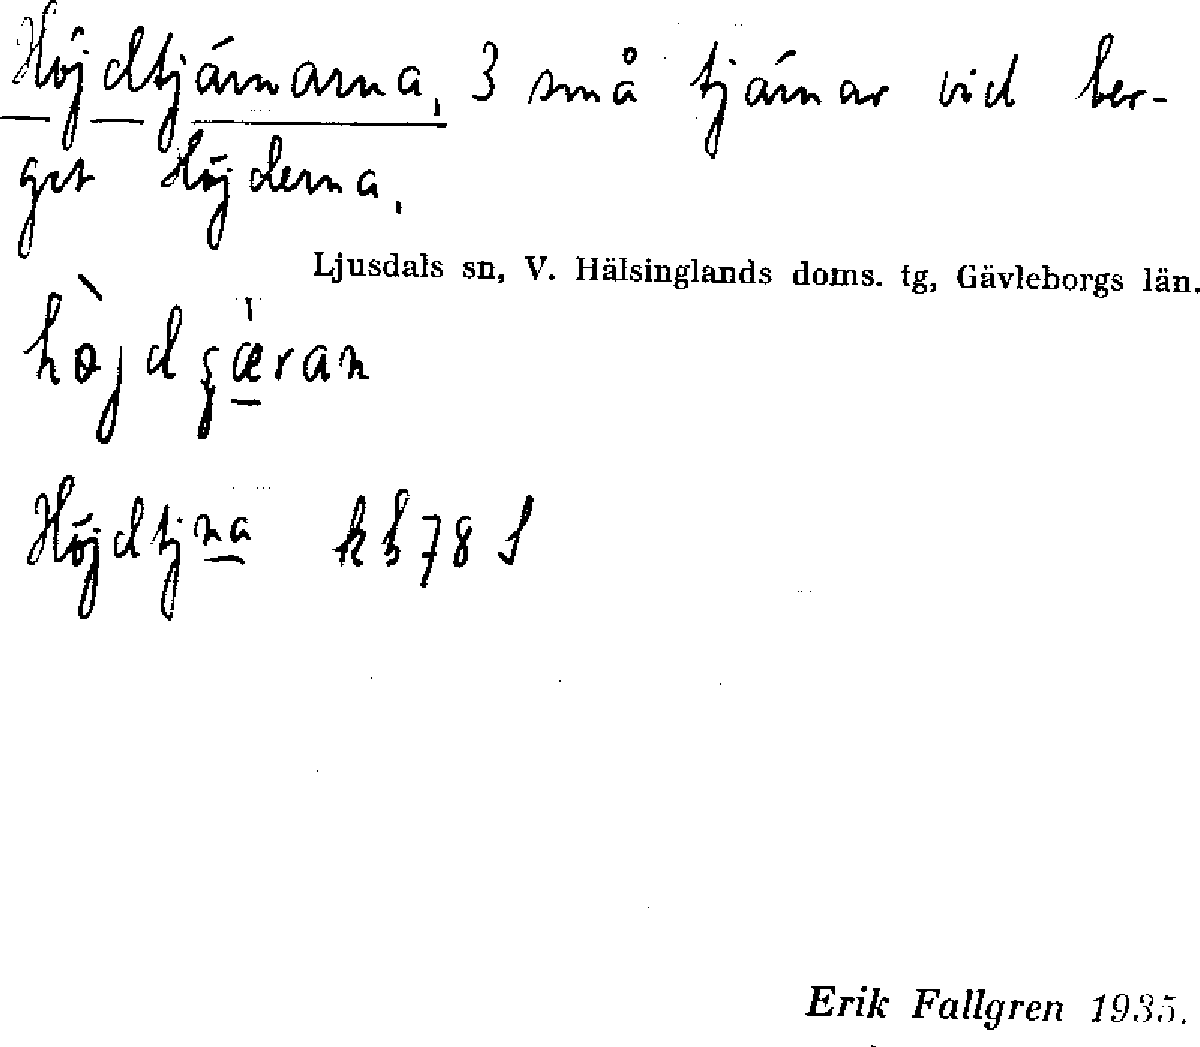 Höjdtjärnarna, 3 små tjärnar vid ber-
get Höjderna.
Ljusdals sn, V. Hälsinglands doms. tg, Gävleborgs län.
Höjdtjna
Erik Fallgren 1935.